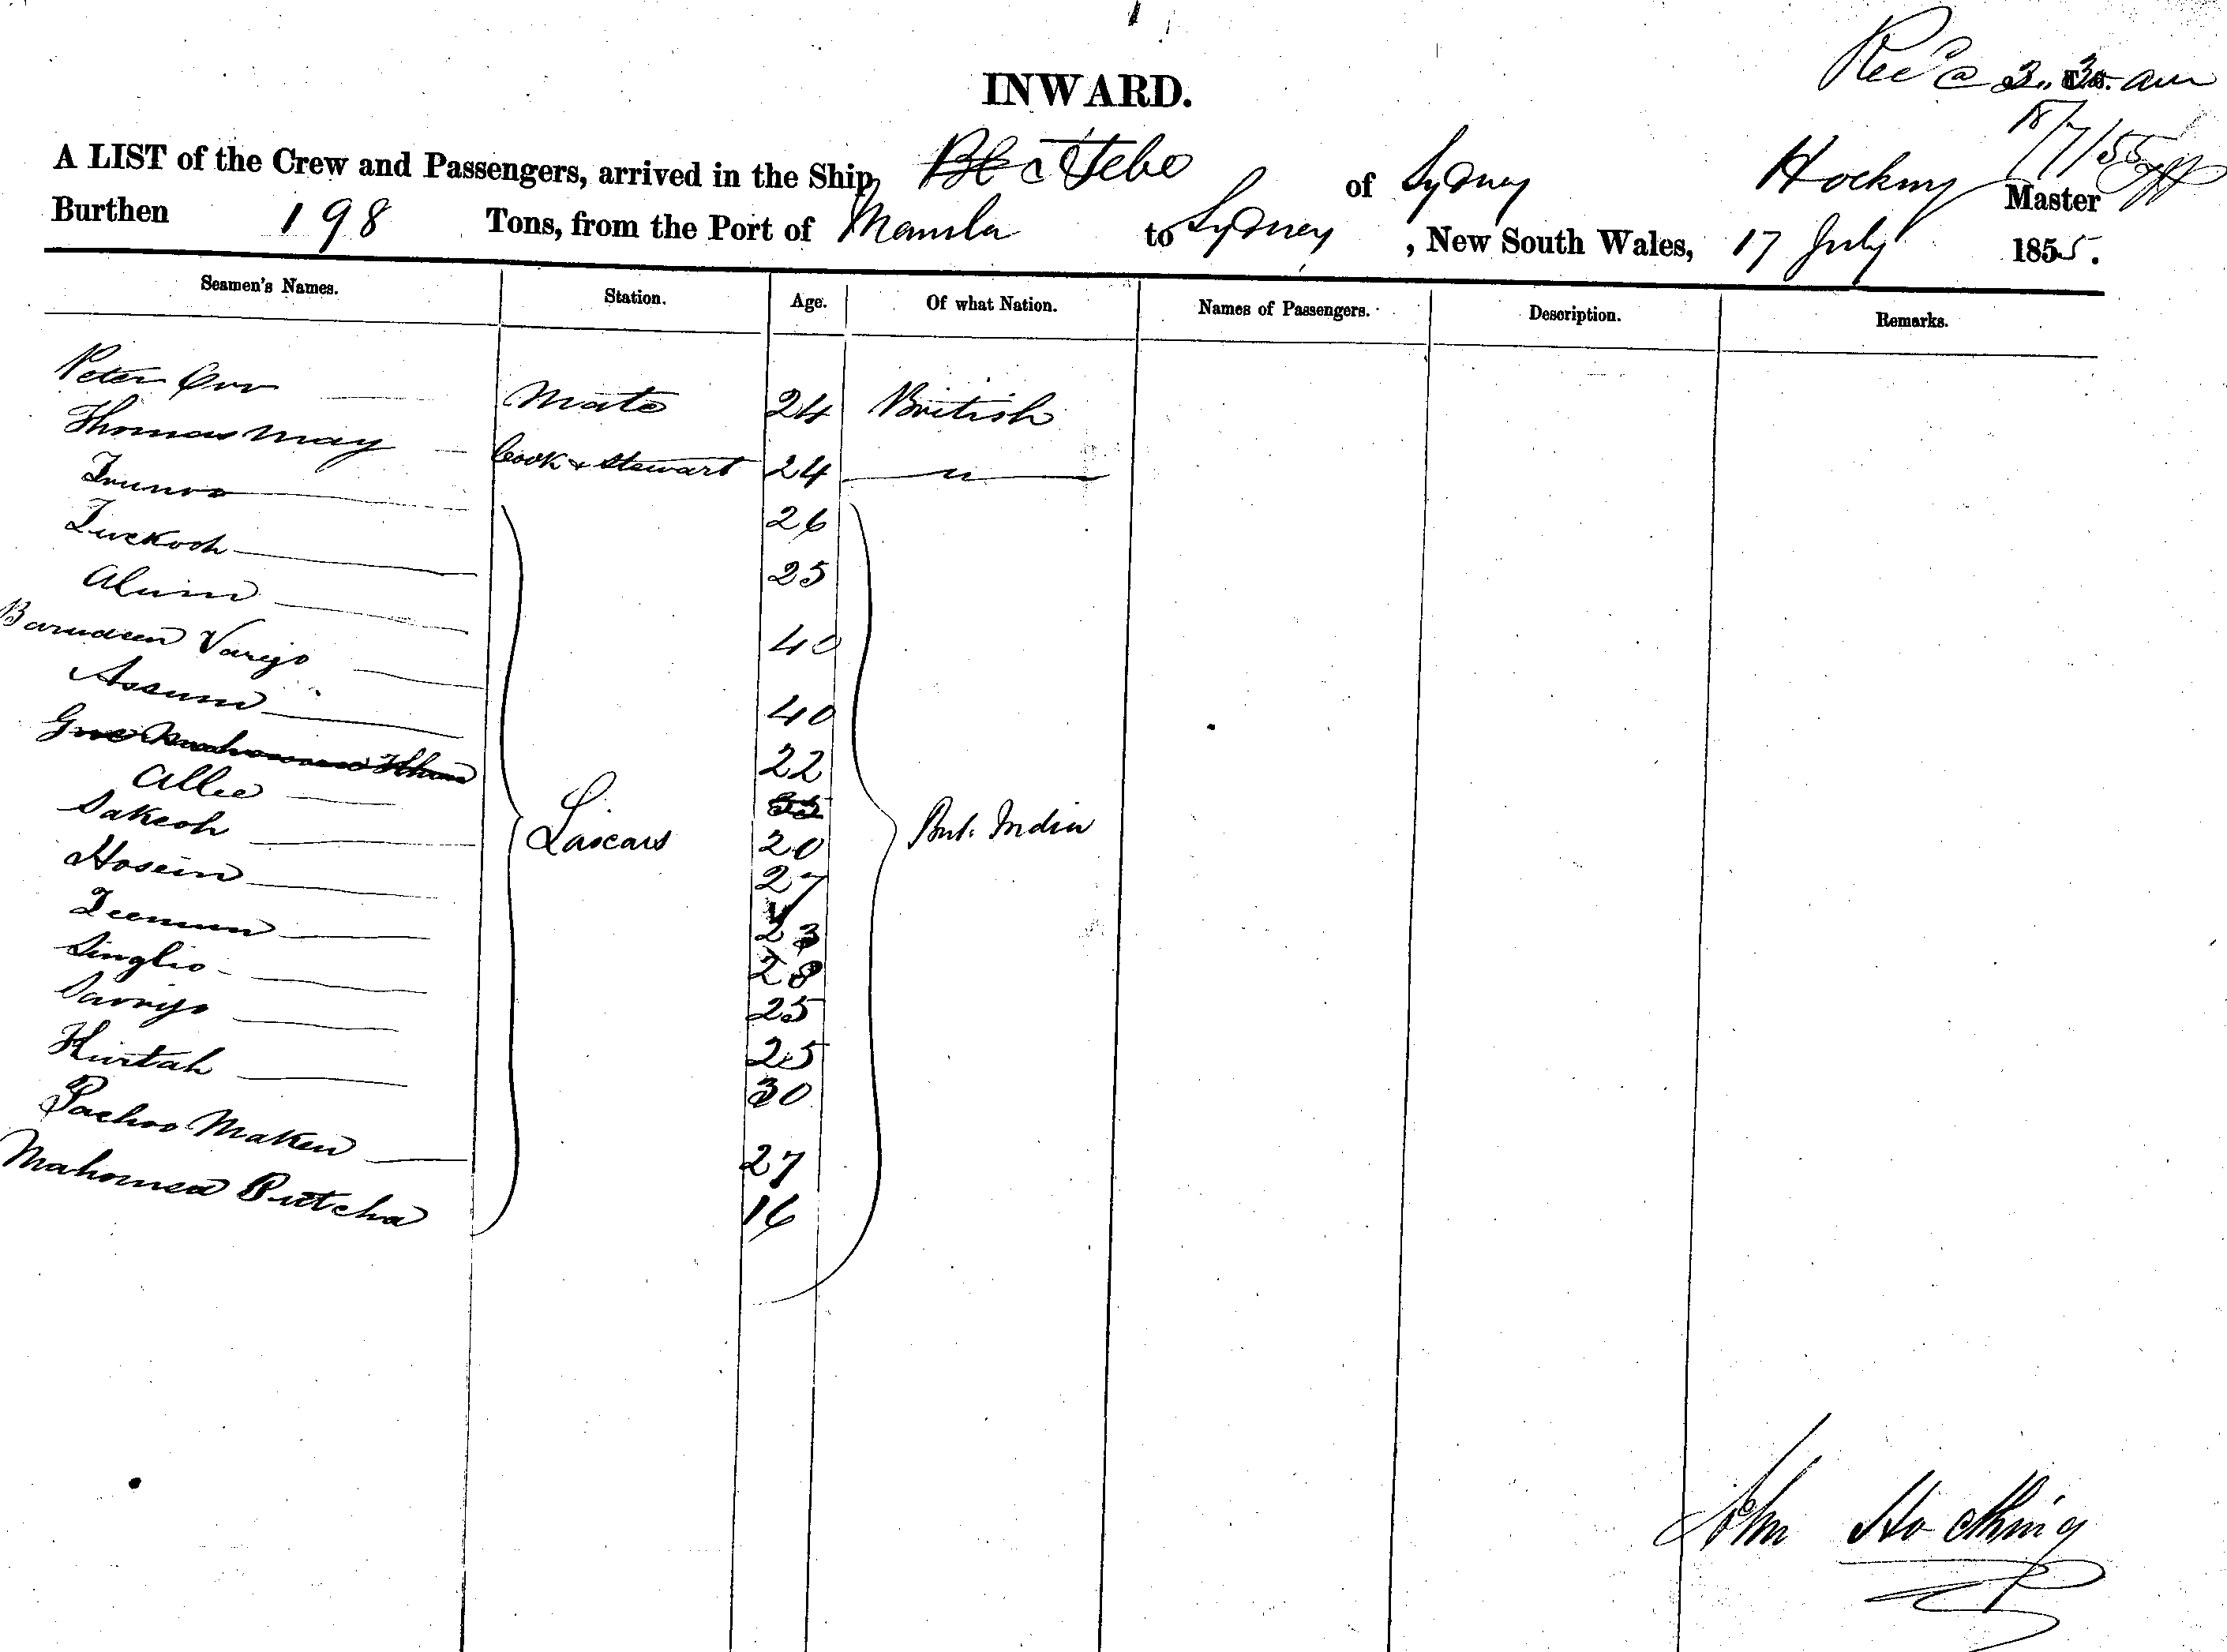 INWARD.
Rec'd @ am
18/7/55
A LIST of the Crew and Passengers, arrived in the Ship Hebe of Sydney Hocking Master
Burthen 198 Tons, from the Port of Manila to Sydney, New South Wales, 17 July 1855.
Seamen's Names. Station. Age. Of what Nation. Names of Passengers. Description. Remarks.
Peter Orr Mate 24 British
Thomas May Cook & Stewart 24 "
26
Luckooh 25
Alum 40
Varijo 40
Assum 22
35
Allee 20
Sakeoh 27
Hosein 23
Teemun 28
Singlio 25
25
Kurtah 30
Pachoo Maken 27
Mahomed Butcha 16
Lascars
Brit. India
John Hocking